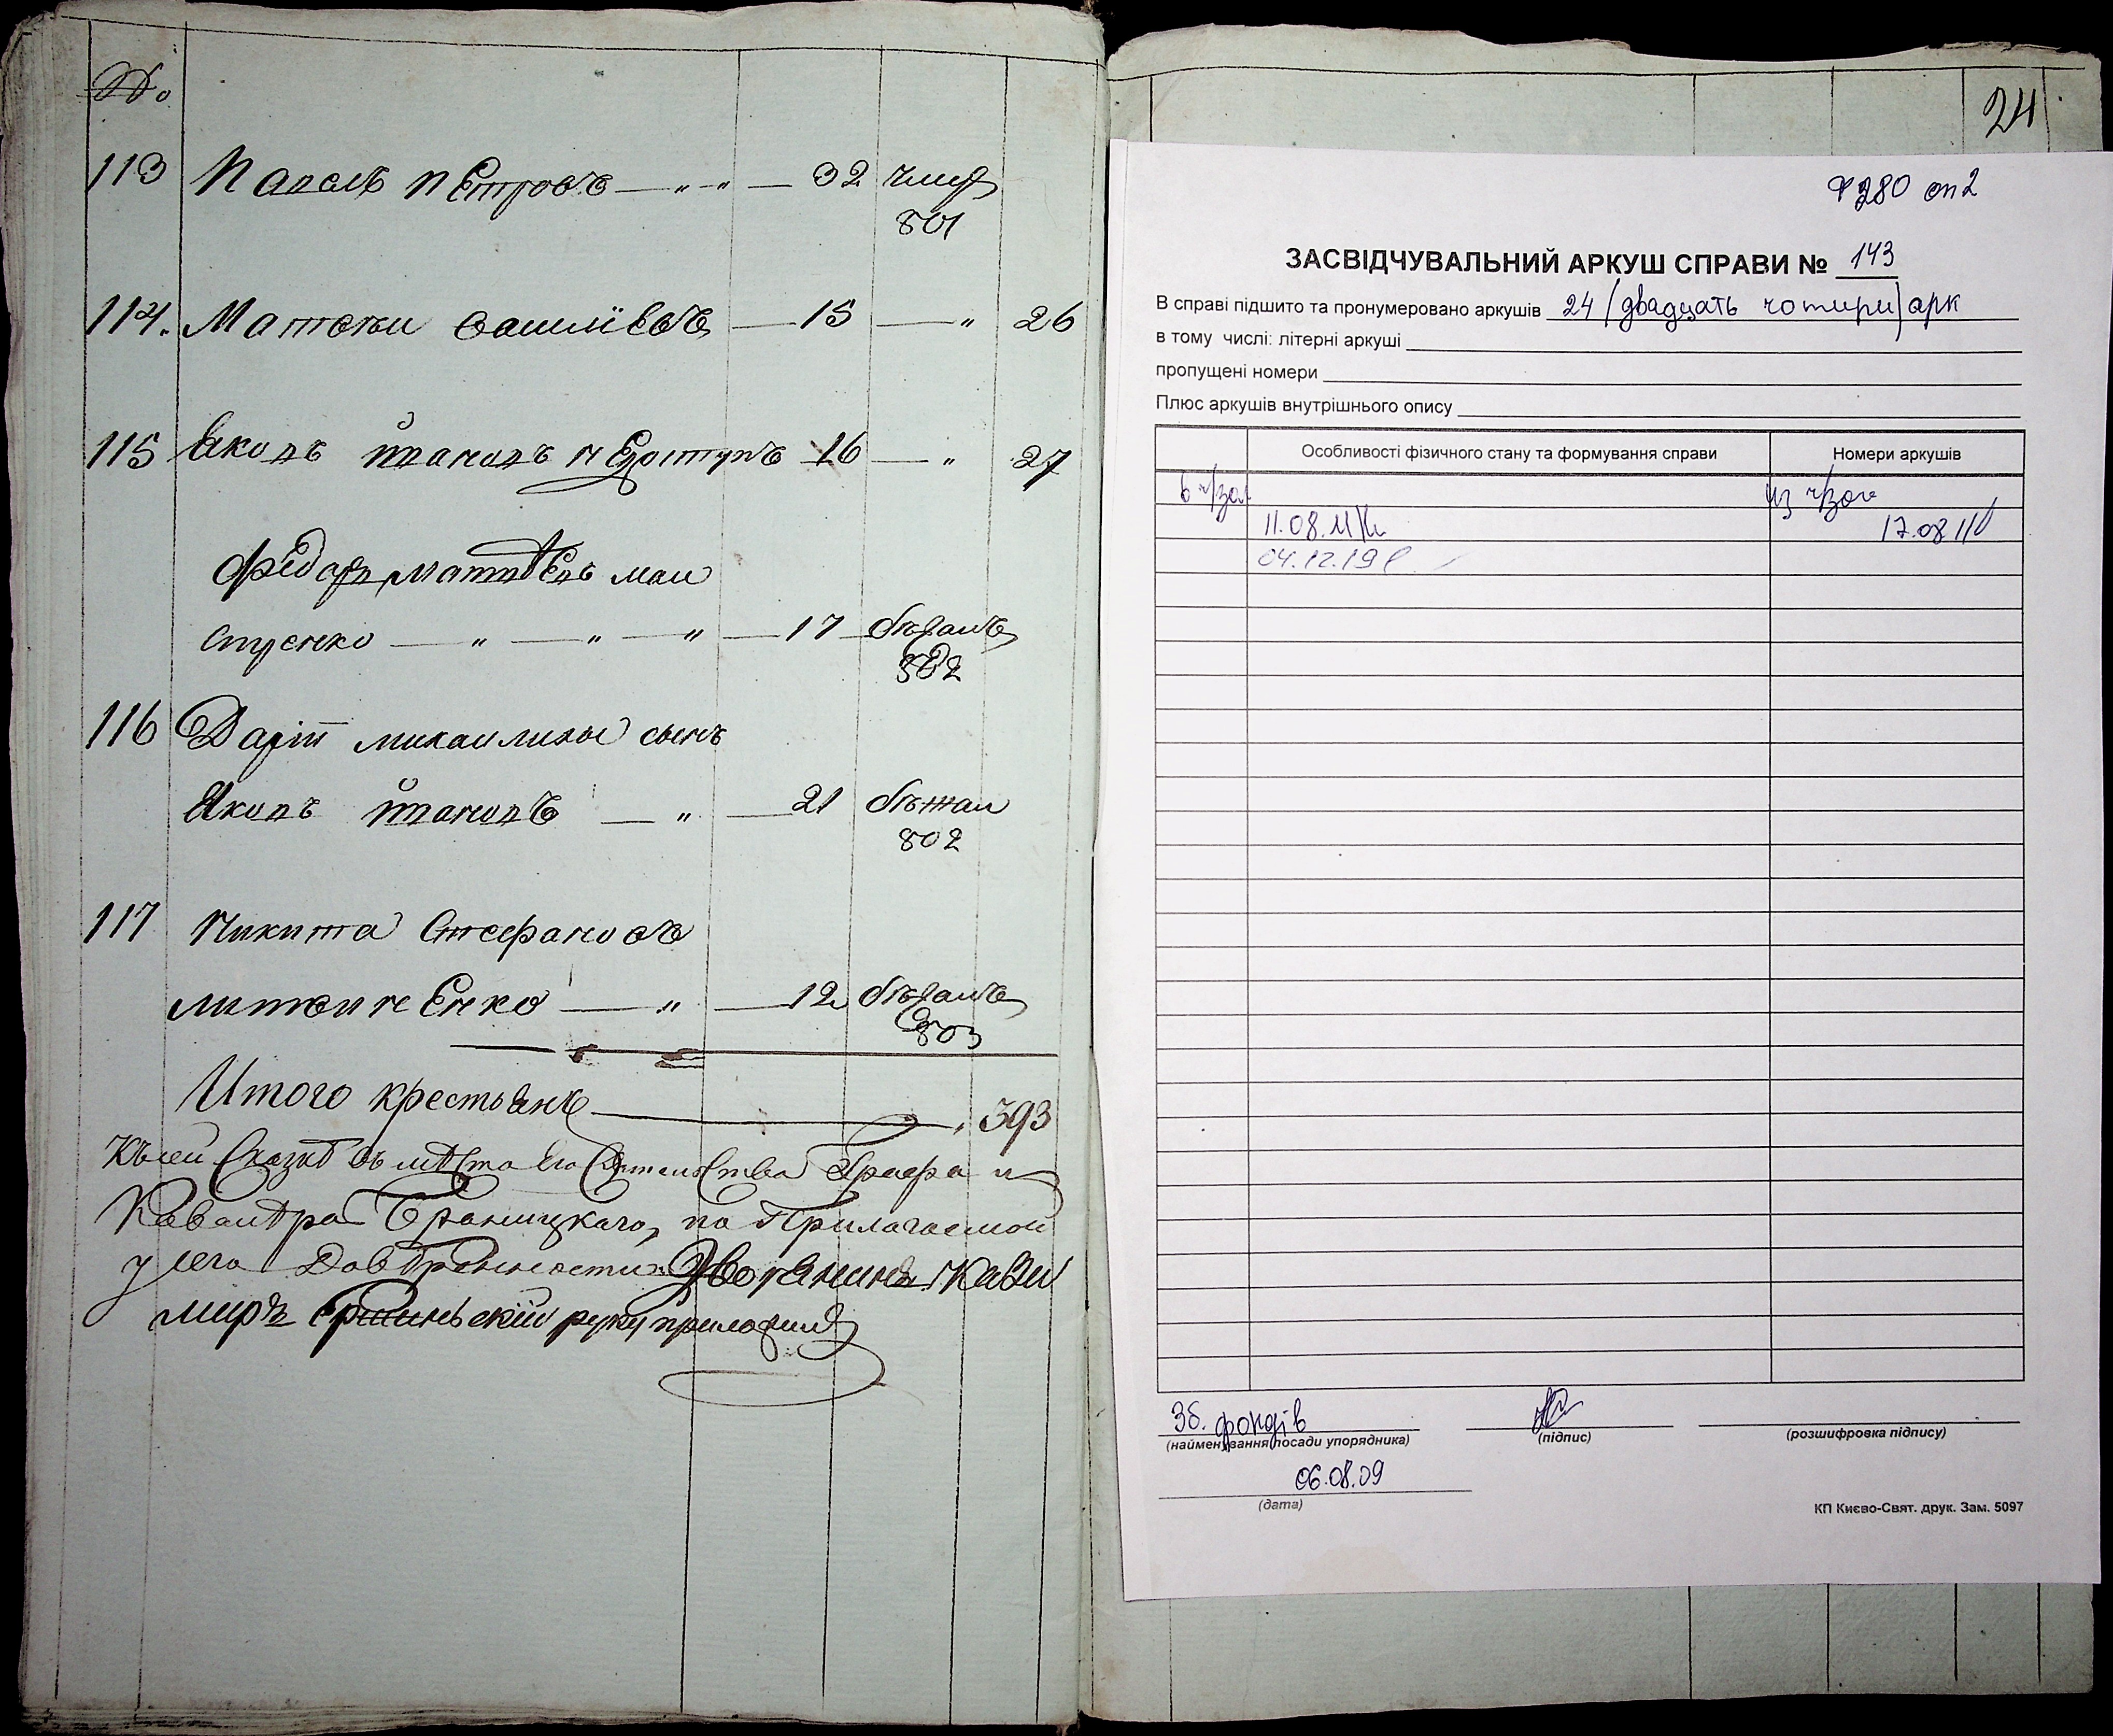 №
113 Павелъ Петровъ — „ „ — 32 умер
801
114. Матвѣи Васильевъ — 15 — „ 26
115 Яковъ Ивановъ Недоступъ 16 — „ 27
Федоръ Матвѣевъ маи
стренко — „ — „ — „ — 17 бѣжалъ
802
116 Дарiи Михаиликъ сынъ
Яковъ Ивановъ — „ — 21 бѣжал
802
117 Никита Стефановъ
Литвиненко — „ — 12 бѣжалъ
803
Итого крестьянъ — 393
Къ сеи Сказкѣ въ мѣсто его Сиятельства Графа и
Кавалѣра Браницкаго, по Прилагаемой
у сего Довѣренности Дворянинъ Кази
миръ руку приложилъ
24
Ф 280 оп 2
ЗАСВІДЧУВАЛЬНИЙ АРКУШ СПРАВИ № 143
В справі підшито та пронумеровано аркушів 24 (двадцать чотири) арк
в тому числі: літерні аркуші
пропущені номери
Плюс аркушів внутрішнього опису
Особливості фізичного стану та формування справи Номери аркушів
в ч/зал из ч/зала
11.08.11 17.08.11
04.12.19
Зб. фондів
(найменування посади упорядника) (підпис) (розшифровка підпису)
06.08.09
(дата)
КП Києво-Свят. друк. Зам. 5097